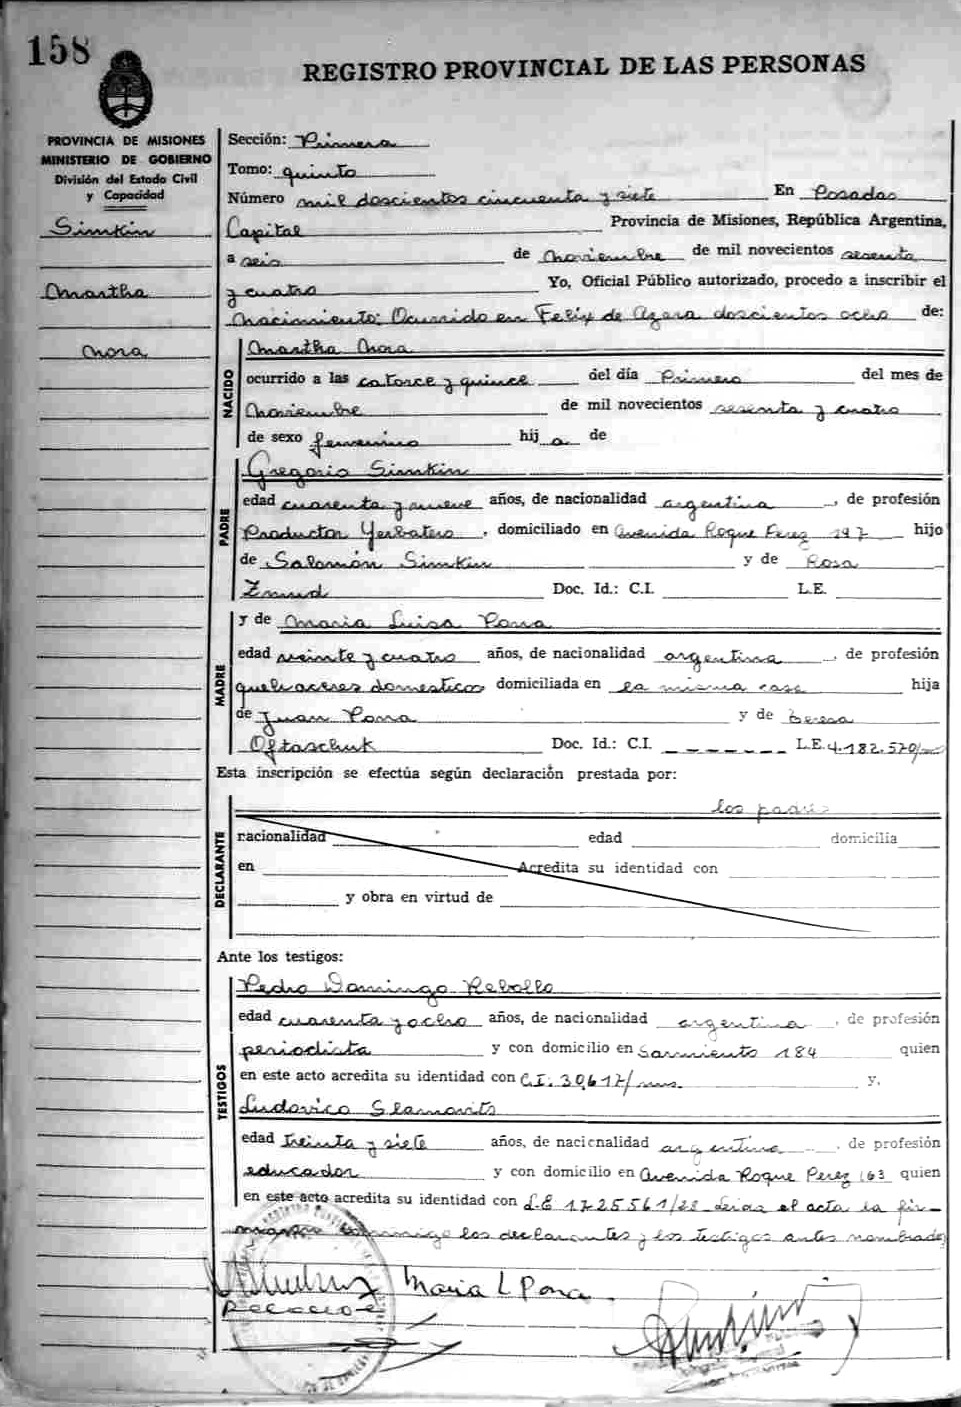 158
REGISTRO PROVINCIAL DE LAS PERSONAS
PROVINCIA DE MISIONES
MINISTERIO DE GOBIERNO
División del Estado Civil
y Capacidad
Simkin
Martha
Nora
Sección: Primera
Tomo: quinto
Número mil doscientos cincuenta y siete En Posadas
Capital Provincia de Misiones, República Argentina,
a seis de noviembre de mil novecientos sesenta
y cuatro Yo, Oficial Público autorizado, procedo a inscribir el
Nacimiento: Ocurrido en Felix de Azara doscientos ocho de:
NACIDO
Martha Nora
ocurrido a las catorce y quince del día Primero del mes de
Noviembre de mil novecientos sesenta y cuatro
de sexo femenino hija de
PADRE
Gregorio Simkin
edad cuarenta y nueve años, de nacionalidad argentina, de profesión
Productor Yerbatero, domiciliado en Avenida Roque Perez 197 hijo
de Salomón Simkin y de Rosa
Zmud Doc. Id.: C.I. L.E.
MADRE
y de Maria Luisa Pona
edad veinte y cuatro años, de nacionalidad argentina, de profesión
quehaceres domesticos domiciliada en la misma casa hija
de Juan Pona y de Teresa
Oftaschuk Doc. Id.: C.I. - - - - - - - L.E. 4.182.570/
Esta inscripción se efectúa según declaración prestada por:
los padres
DECLARANTE
nacionalidad edad domicilia
en Acredita su identidad con
y obra en virtud de
Ante los testigos:
TESTIGOS
Pedro Domingo Rebollo
edad cuarenta y ocho años, de nacionalidad argentina, de profesión
periodista y con domicilio en Sarmiento 184 quien
en este acto acredita su identidad con C.I. 30617/mns. y,
Ludovico Slamovits
edad treinta y siete años, de nacionalidad argentina, de profesión
educador y con domicilio en Avenida Roque Perez 163 quien
en este acto acredita su identidad con L.E 1725561/28 Leida el acta la fir-
man conmigo los declarantes y los testigos antes nombrados
Maria L Pona.